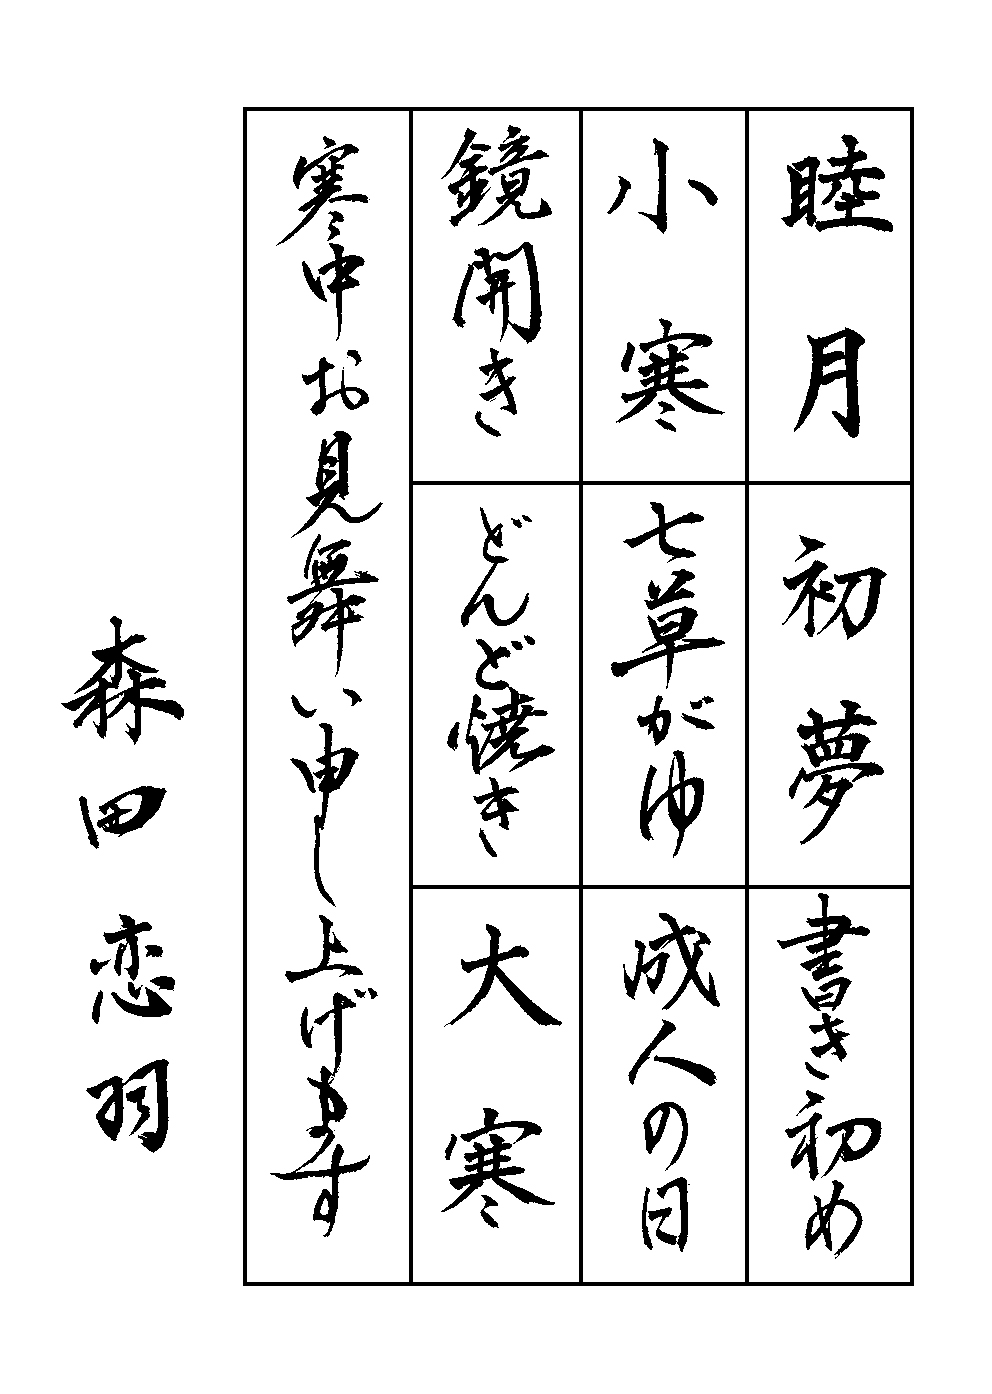 睦月
初夢
書き初め
小寒
七草がゆ
成人の日
鏡開き
どんど焼き
大寒
寒中お見舞い申し上げます
森田恋羽